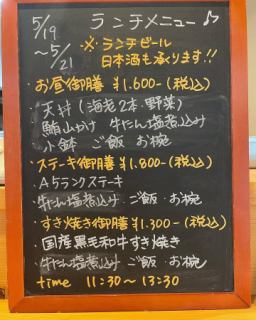 5/19
~5/21
ランチメニュー♪
※ランチビール
日本酒も承ります!!
・お昼御膳 ¥1.600-(税込)
・天丼(海老2本・野菜)
鮪山かけ 牛たん塩煮込み
小鉢 ご飯 お椀
・ステーキ御膳 ¥1.800-(税込)
・A5ランクステーキ
牛たん塩煮込み ご飯・お椀
・すき焼き御膳 ¥1.300-(税込)
・国産黒毛和牛すき焼き
・牛たん塩煮込み ご飯・お椀
time 11:30~13:30